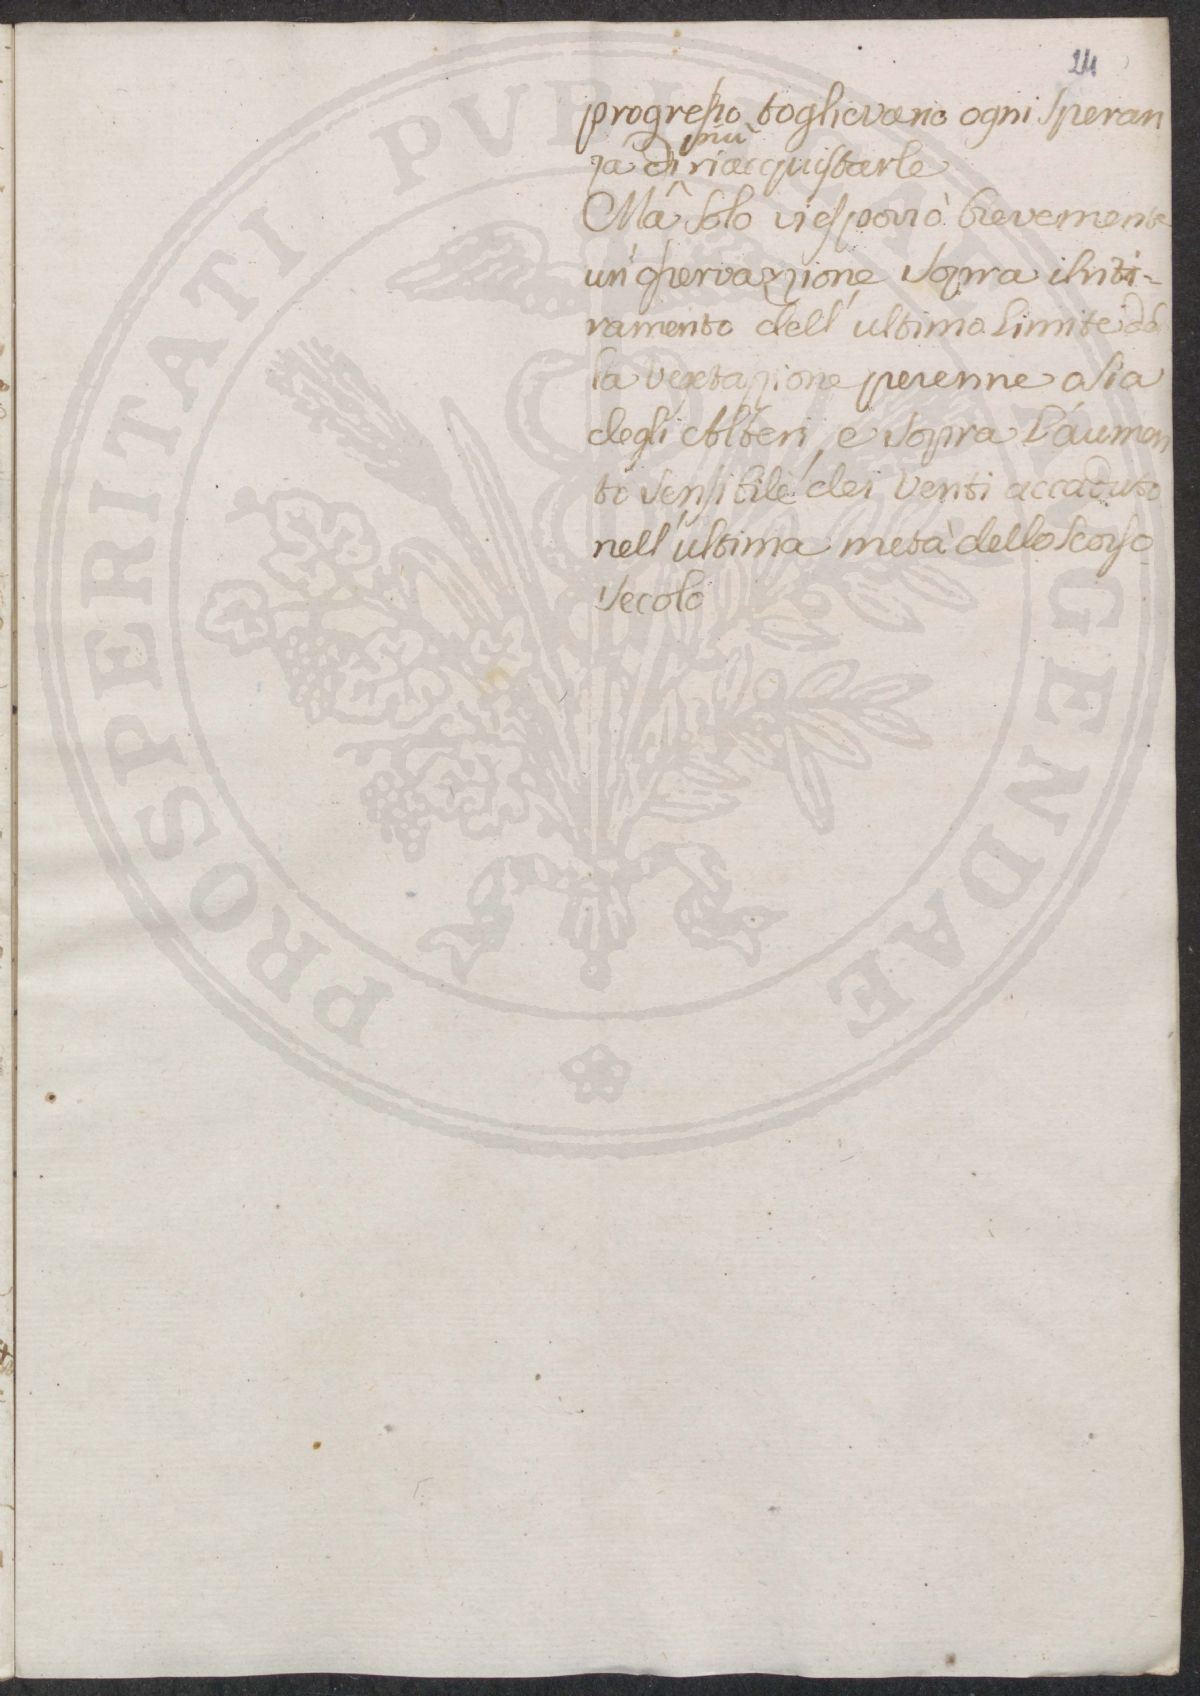 24
progresso toglievano ogni speran
più
za di riacquistarle
Mà solo vi esporrò brevemente
un' osservazione sopra il riti-
ramento dell' ultimo limite del
la vegetazione perenne o sia
degli Alberi, e sopra l' aumen
to sensibile dei Venti accaduto
nell' ultima metà dello scorso
secolo
PROSPERITATI PVBLICAE AVGENDAE